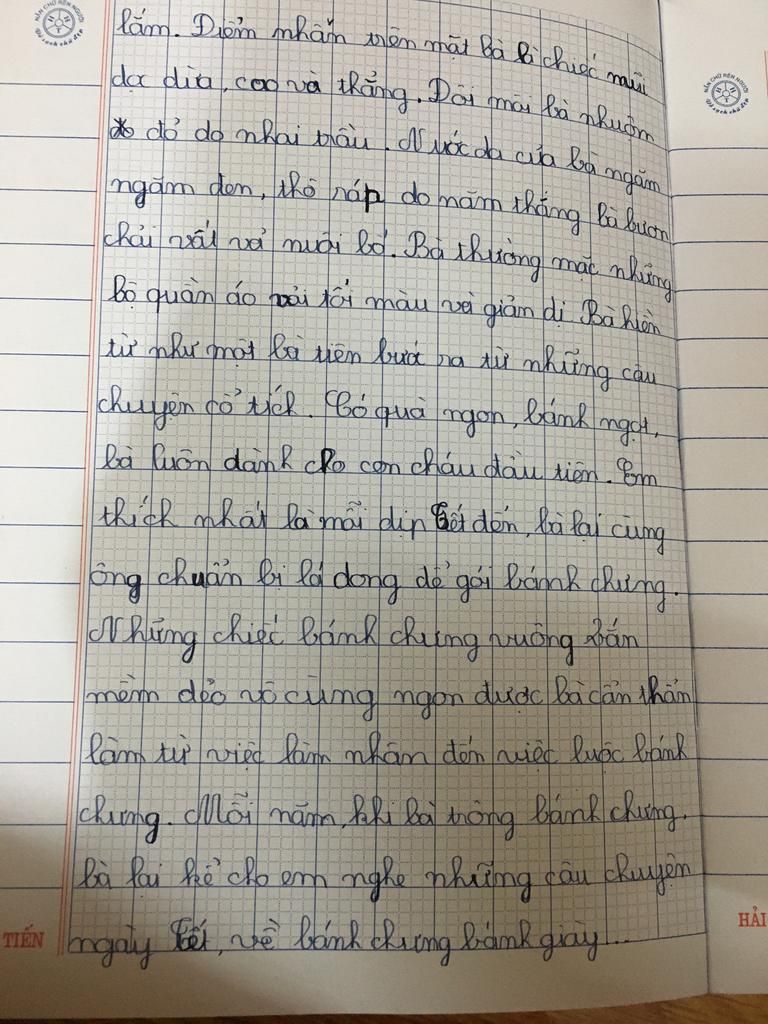 NÉT CHỮ NẾT NGƯỜI
Vở sạch chữ đẹp
lắm. Điểm nhấn trên mặt bà là chiếc mũi
dọc dừa, cao và thẳng. Đôi môi bà nhuộm
đỏ do nhai trầu. Nước da của bà ngăm
ngăm đen, thô ráp do năm tháng bà bươn
chải vất vả nuôi bố. Bà thường mặc những
bộ quần áo vải tối màu và giản dị. Bà hiền
từ như một bà tiên bước ra từ những câu
chuyện cổ tích. Có quà ngon, bánh ngọt,
bà luôn dành cho con cháu đầu tiên. Em
thích nhất là mỗi dịp Tết đến, bà lại cùng
ông chuẩn bị lá dong để gói bánh chưng.
Những chiếc bánh chưng vuông vắn
mềm dẻo vô cùng ngon được bà cẩn thẩn
làm từ việc làm nhân đến việc luộc bánh
chưng. Mỗi năm, khi bà trông bánh chưng.
bà lại kể cho em nghe những câu chuyện
ngày Tết, về bánh chưng bánh giày...
TIẾN
HẢI